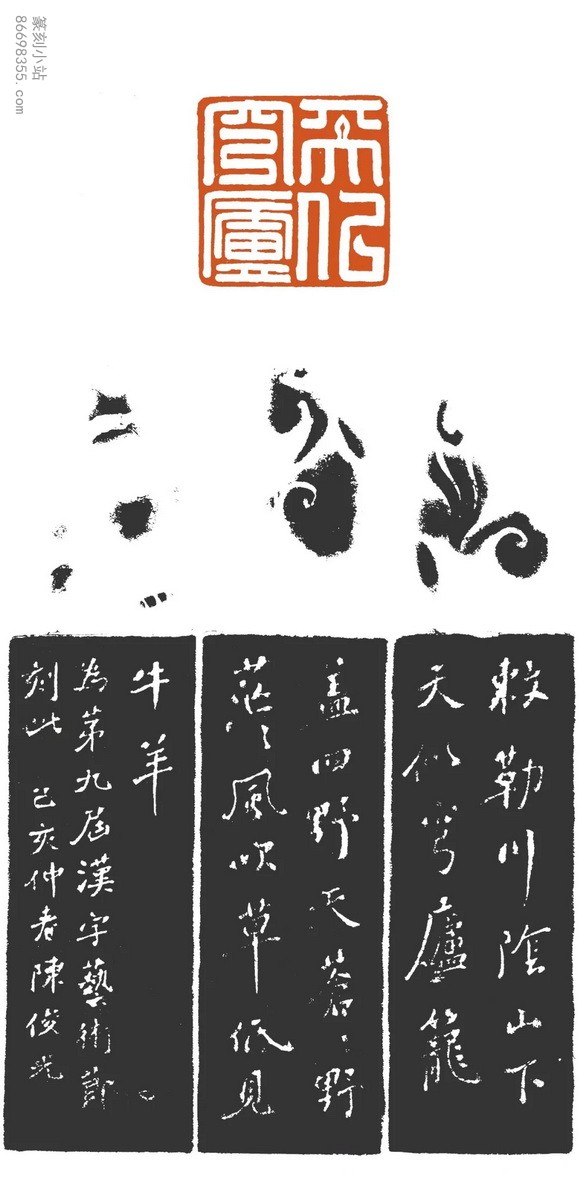 篆刻小站
86698355.com
天似
穹廬
敕勒川陰山下
天似穹廬籠
盖四野天蒼〻野
茫〻風吹草低見
牛羊
為第九屆漢字藝術節
刻此 己亥仲春陳俊光